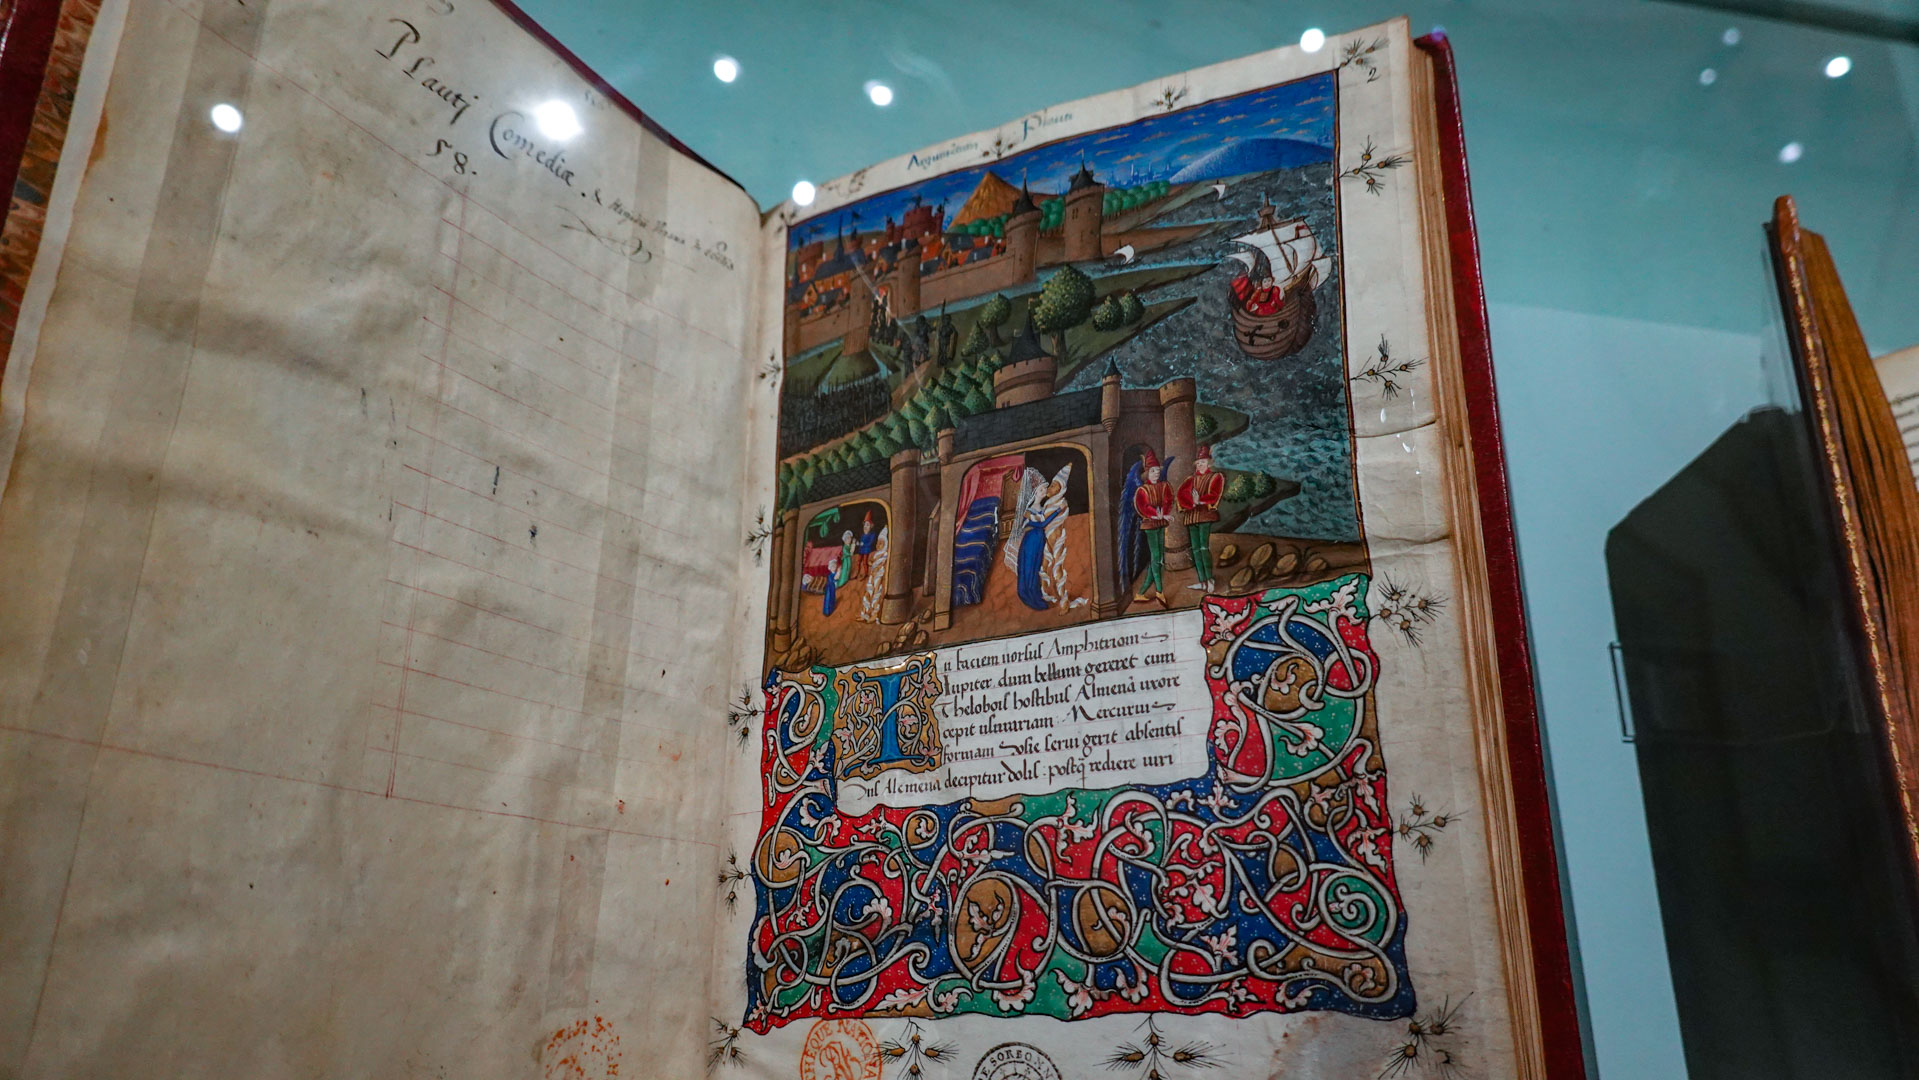 Plautj Comediæ. &
58.
Argumentum Plauti
2
In faciem uersus Amphitrionis
Iupiter dum bellum gereret cum
Thelobois hostibus Almenā uxore
cepit usurariam: Mercurius
formam Sosie serui gerit absentis
his Alcmena decipitur dolis: postq̄ rediere uiri
THÈQUE NATIONA
DE SORBONN